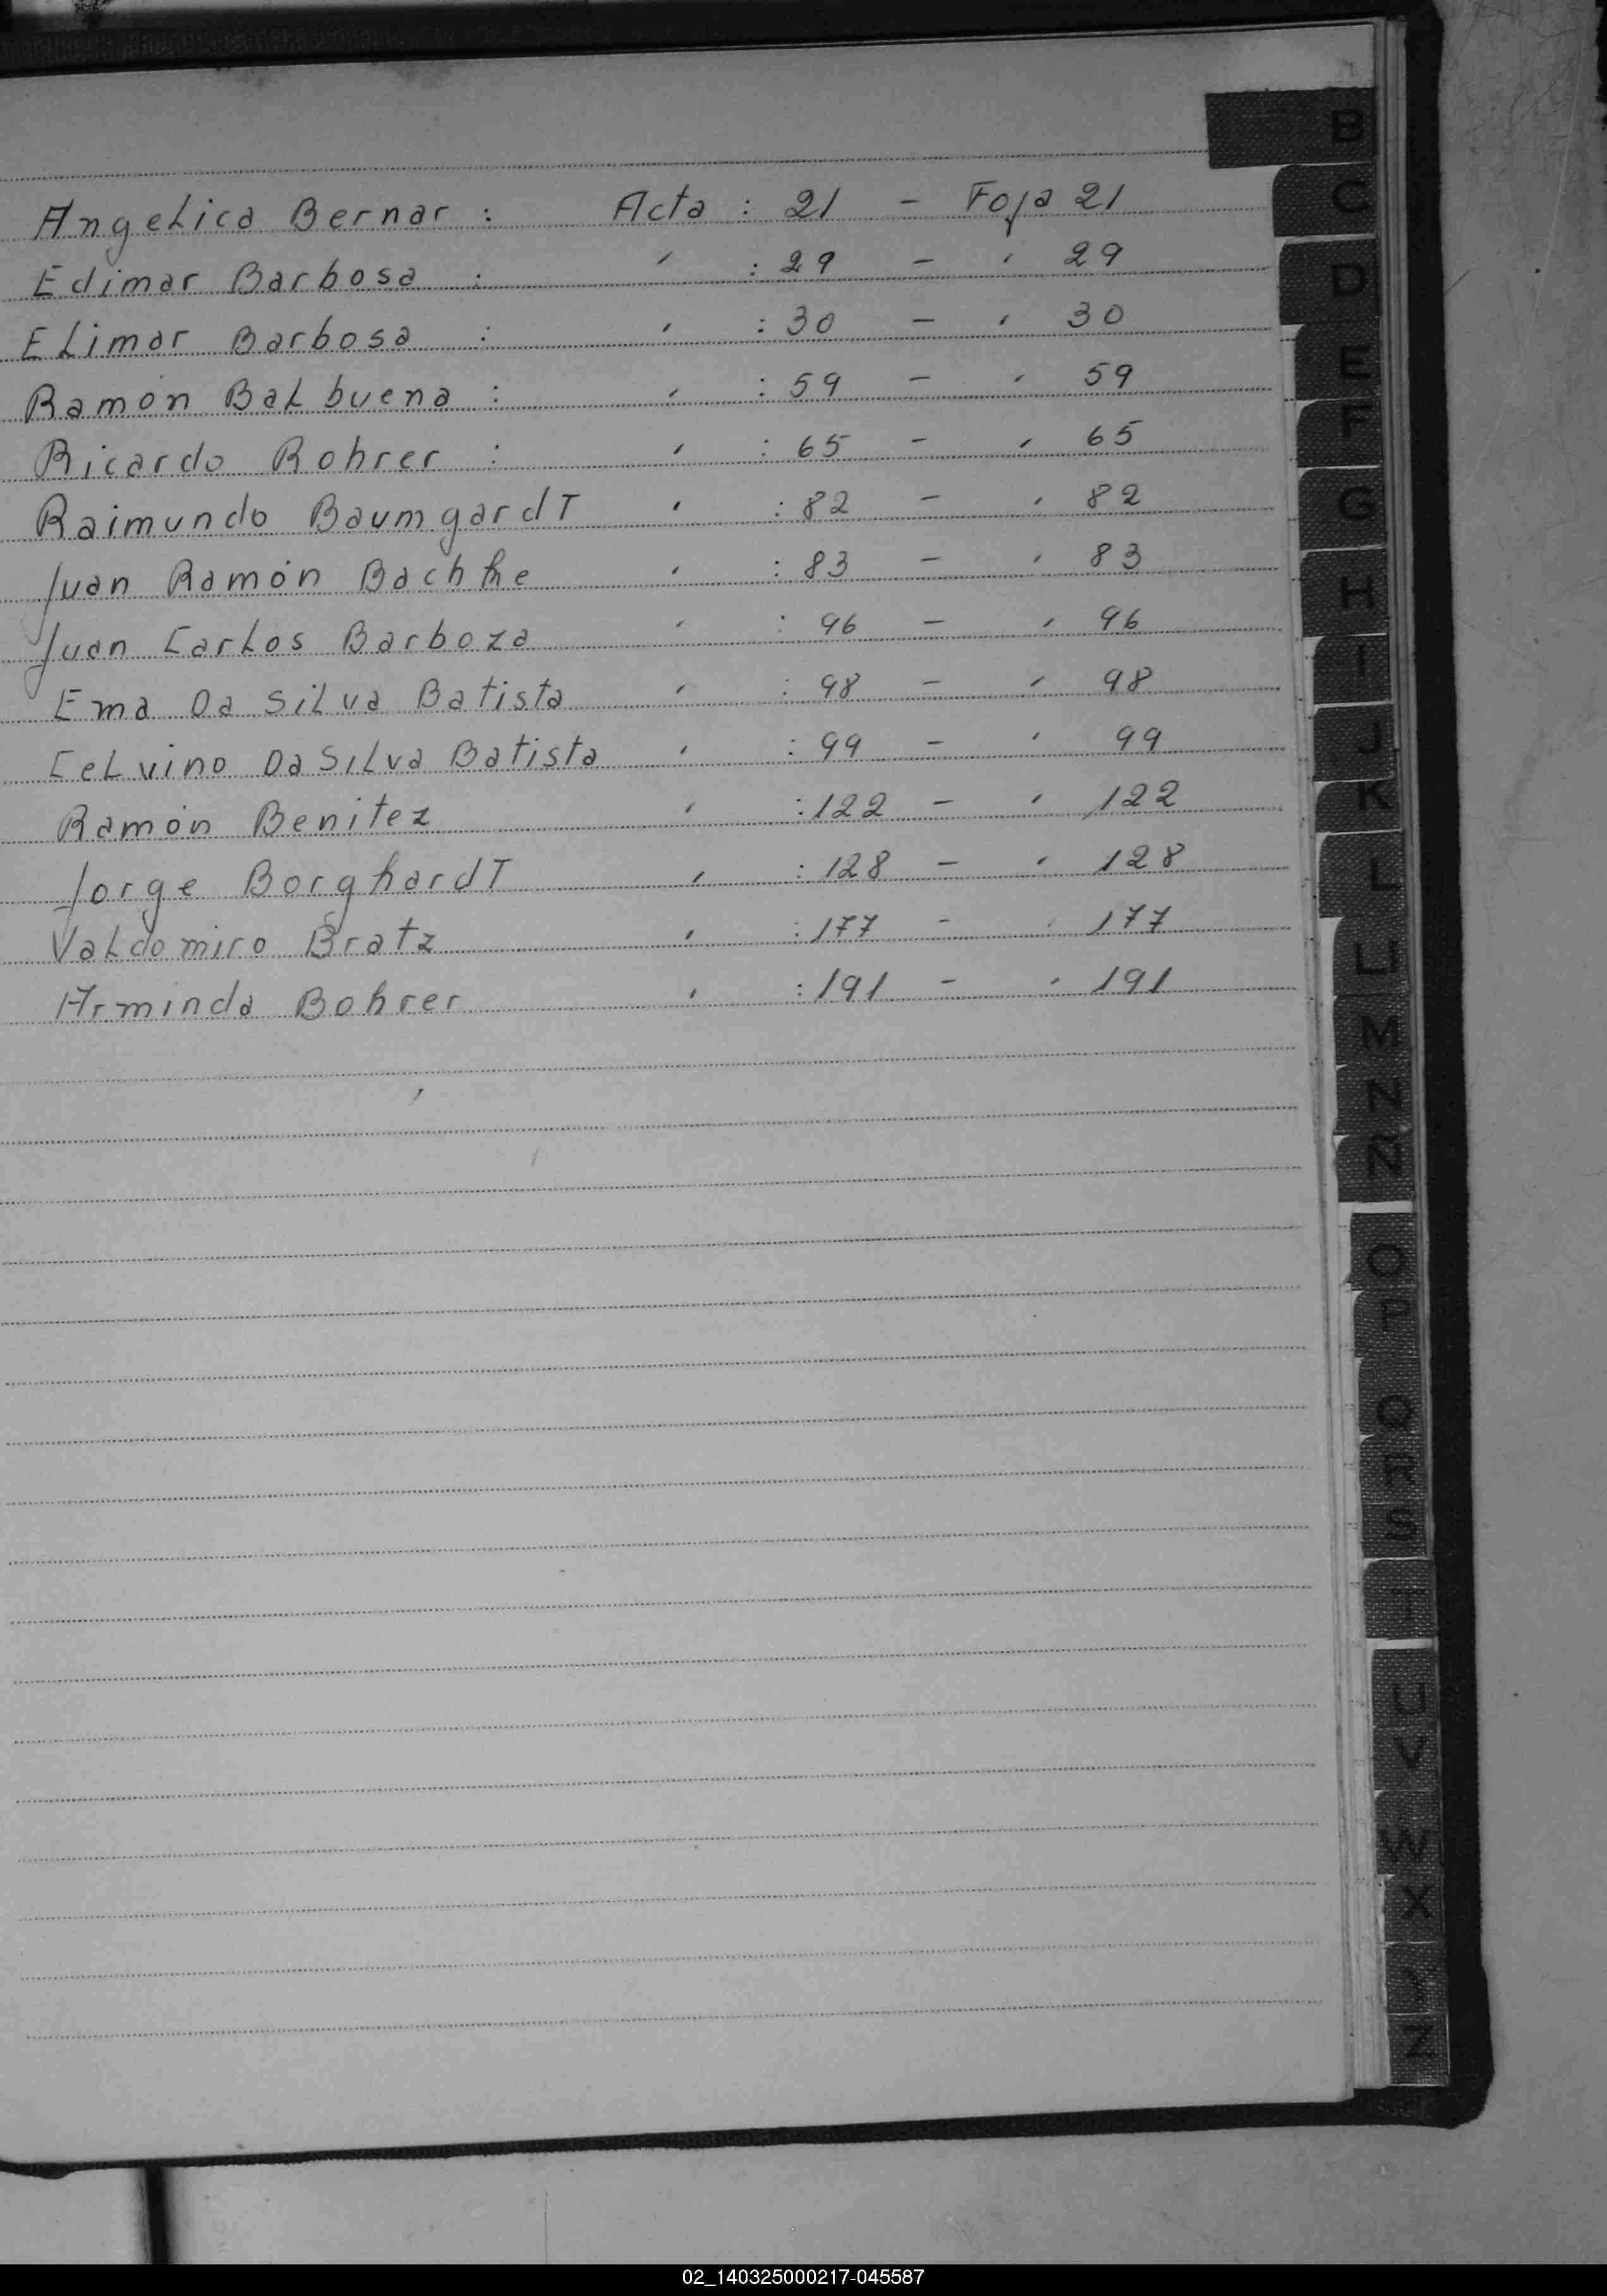 B
Angelica Bernar : Acta : 21 - Foja 21
Edimar Barbosa : ' : 29 - ' 29
Elimar Barbosa : ' : 30 - ' 30
Ramón Balbuena : ' : 59 - ' 59
Ricardo Rohrer : ' : 65 - ' 65
Raimundo BaumgardT ' : 82 - ' 82
Juan Ramón Bachke ' : 83 - ' 83
Juan Carlos Barboza ' : 96 - ' 96
Ema Da Silva Batista ' : 98 - ' 98
Celvino Da Silva Batista ' : 99 - ' 99
Ramón Benitez ' : 122 - ' 122
Jorge BorghardT ' : 128 - ' 128
Valdomiro Bratz ' : 177 - ' 177
Arminda Bohrer ' : 191 - ' 191
C
D
E
F
G
H
I
J
K
L
LL
M
N
Ñ
O
P
Q
R
S
T
U
V
W
X
Z
02_140325000217-045587